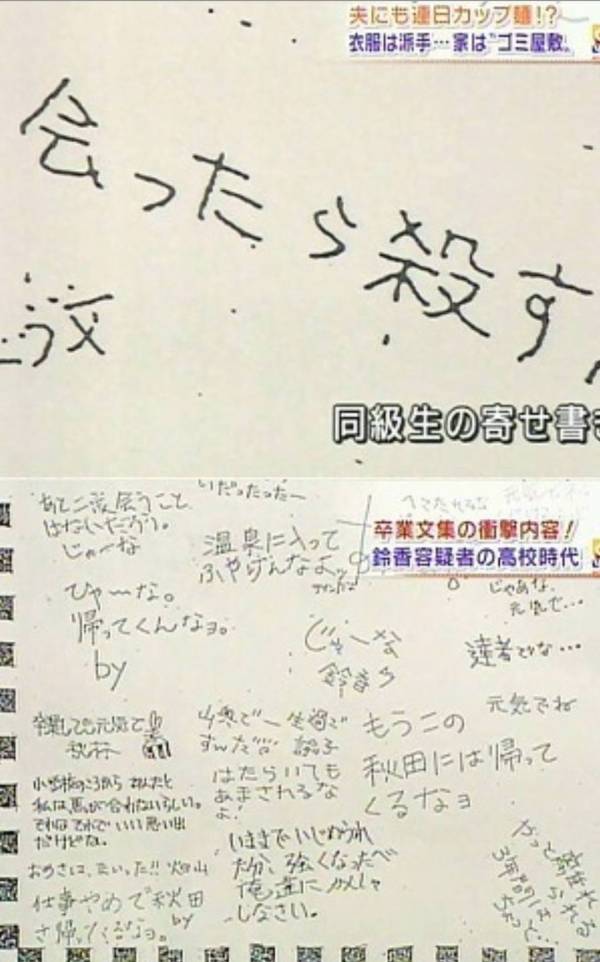 夫にも連日カップ麺!?
衣服は派手…家は"ゴミ屋敷"
会ったら殺す
同級生の寄せ書き
卒業文集の衝撃内容!
鈴香容疑者の高校時代
いだったったー
あと二度会うこと
はないだろう。
じゃーな
温泉に入って
ふやけんなよ
ひゃーな。
帰ってくんなョ。
by
じゃーな
じゃあな、
元気で…
達者でな…
元気でね
卒業しても元気で
山奥で一生過で
すんだ
はたらいても
あまされるな
よ!
もうこの
秋田には帰って
くるなョ
小学校のころから あんたと
私は、馬が合わないらしい。
それはそれで いい思い出
だけどな。
いままでいじめられ
た分、強くなったべ
俺達にカンシャ
しなさい。
仕事やめで秋田
さ帰ってくるなョ。
by
やっと離れ
られる
3年間